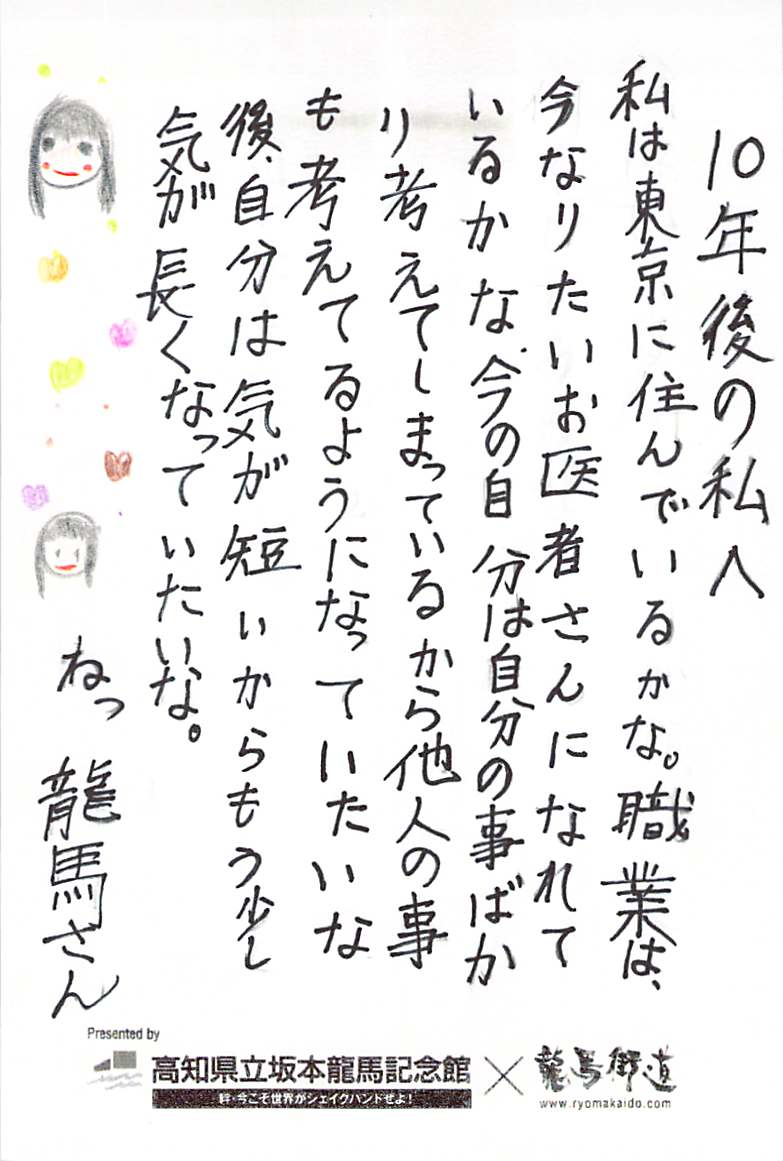 10年後の私へ
私は東京に住んでいるかな。職業は、
今なりたいお医者さんになれて
いるかな、今の自分は自分の事ばか
り考えてしまっているから他人の事
も考えてるようになっていたいな
後、自分は気が短いからもう少し
気が長くなっていたいな。
ねっ龍馬さん
Presented by
高知県立坂本龍馬記念館
絆・今こそ世界がシェイクハンドぜよ！
×
龍馬街道
www.ryomakaido.com